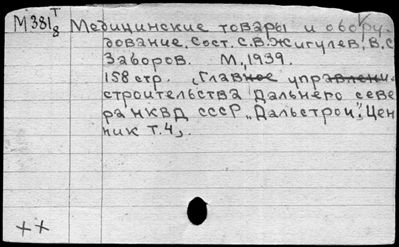 М381 т/8 Медицинские товары и обору-
дование, Сост. С.В.Жигулев, В.С.
Заборов. М., 1939.
158 стр. "Главное управлени-
строительства Дальнего севе
ра НКВД СССР "Дальстрой". Цен
ник Т.4".
++